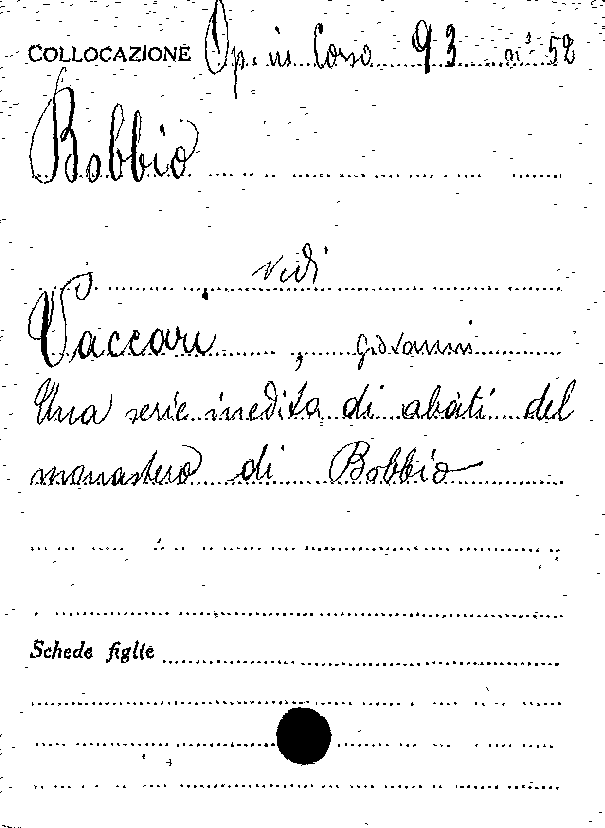 COLLOCAZIONE Op. in Corso 93 n° 52
Bobbio
vedi
Vaccari, Giovanni
Una serie inedita di abati del
monastero di Bobbio
Schede figlie